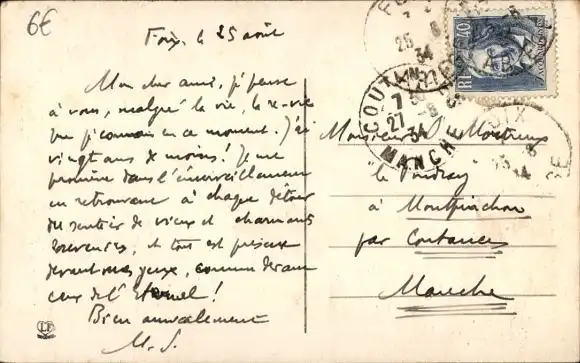 6€
Foix, le 25 août
Mon cher ami, je pense
à vous, malgré la vie, la re-vie
que je connais en ce moment. J'ai
vingt ans de moins! Je me
promène dans l'émerveillement
en retrouvant à chaque détour
du sentier de vieux et charmants
souvenirs, et tout est précieux
devant mes yeux, comme devant
ceux de l'Eternel!
Bien amicalement
M. S.
Monsieur
à Montpinchon
par Coutances
Manche
COUTANCES
27
34
MANCHE
FOIX
25
34
40
RF
LF